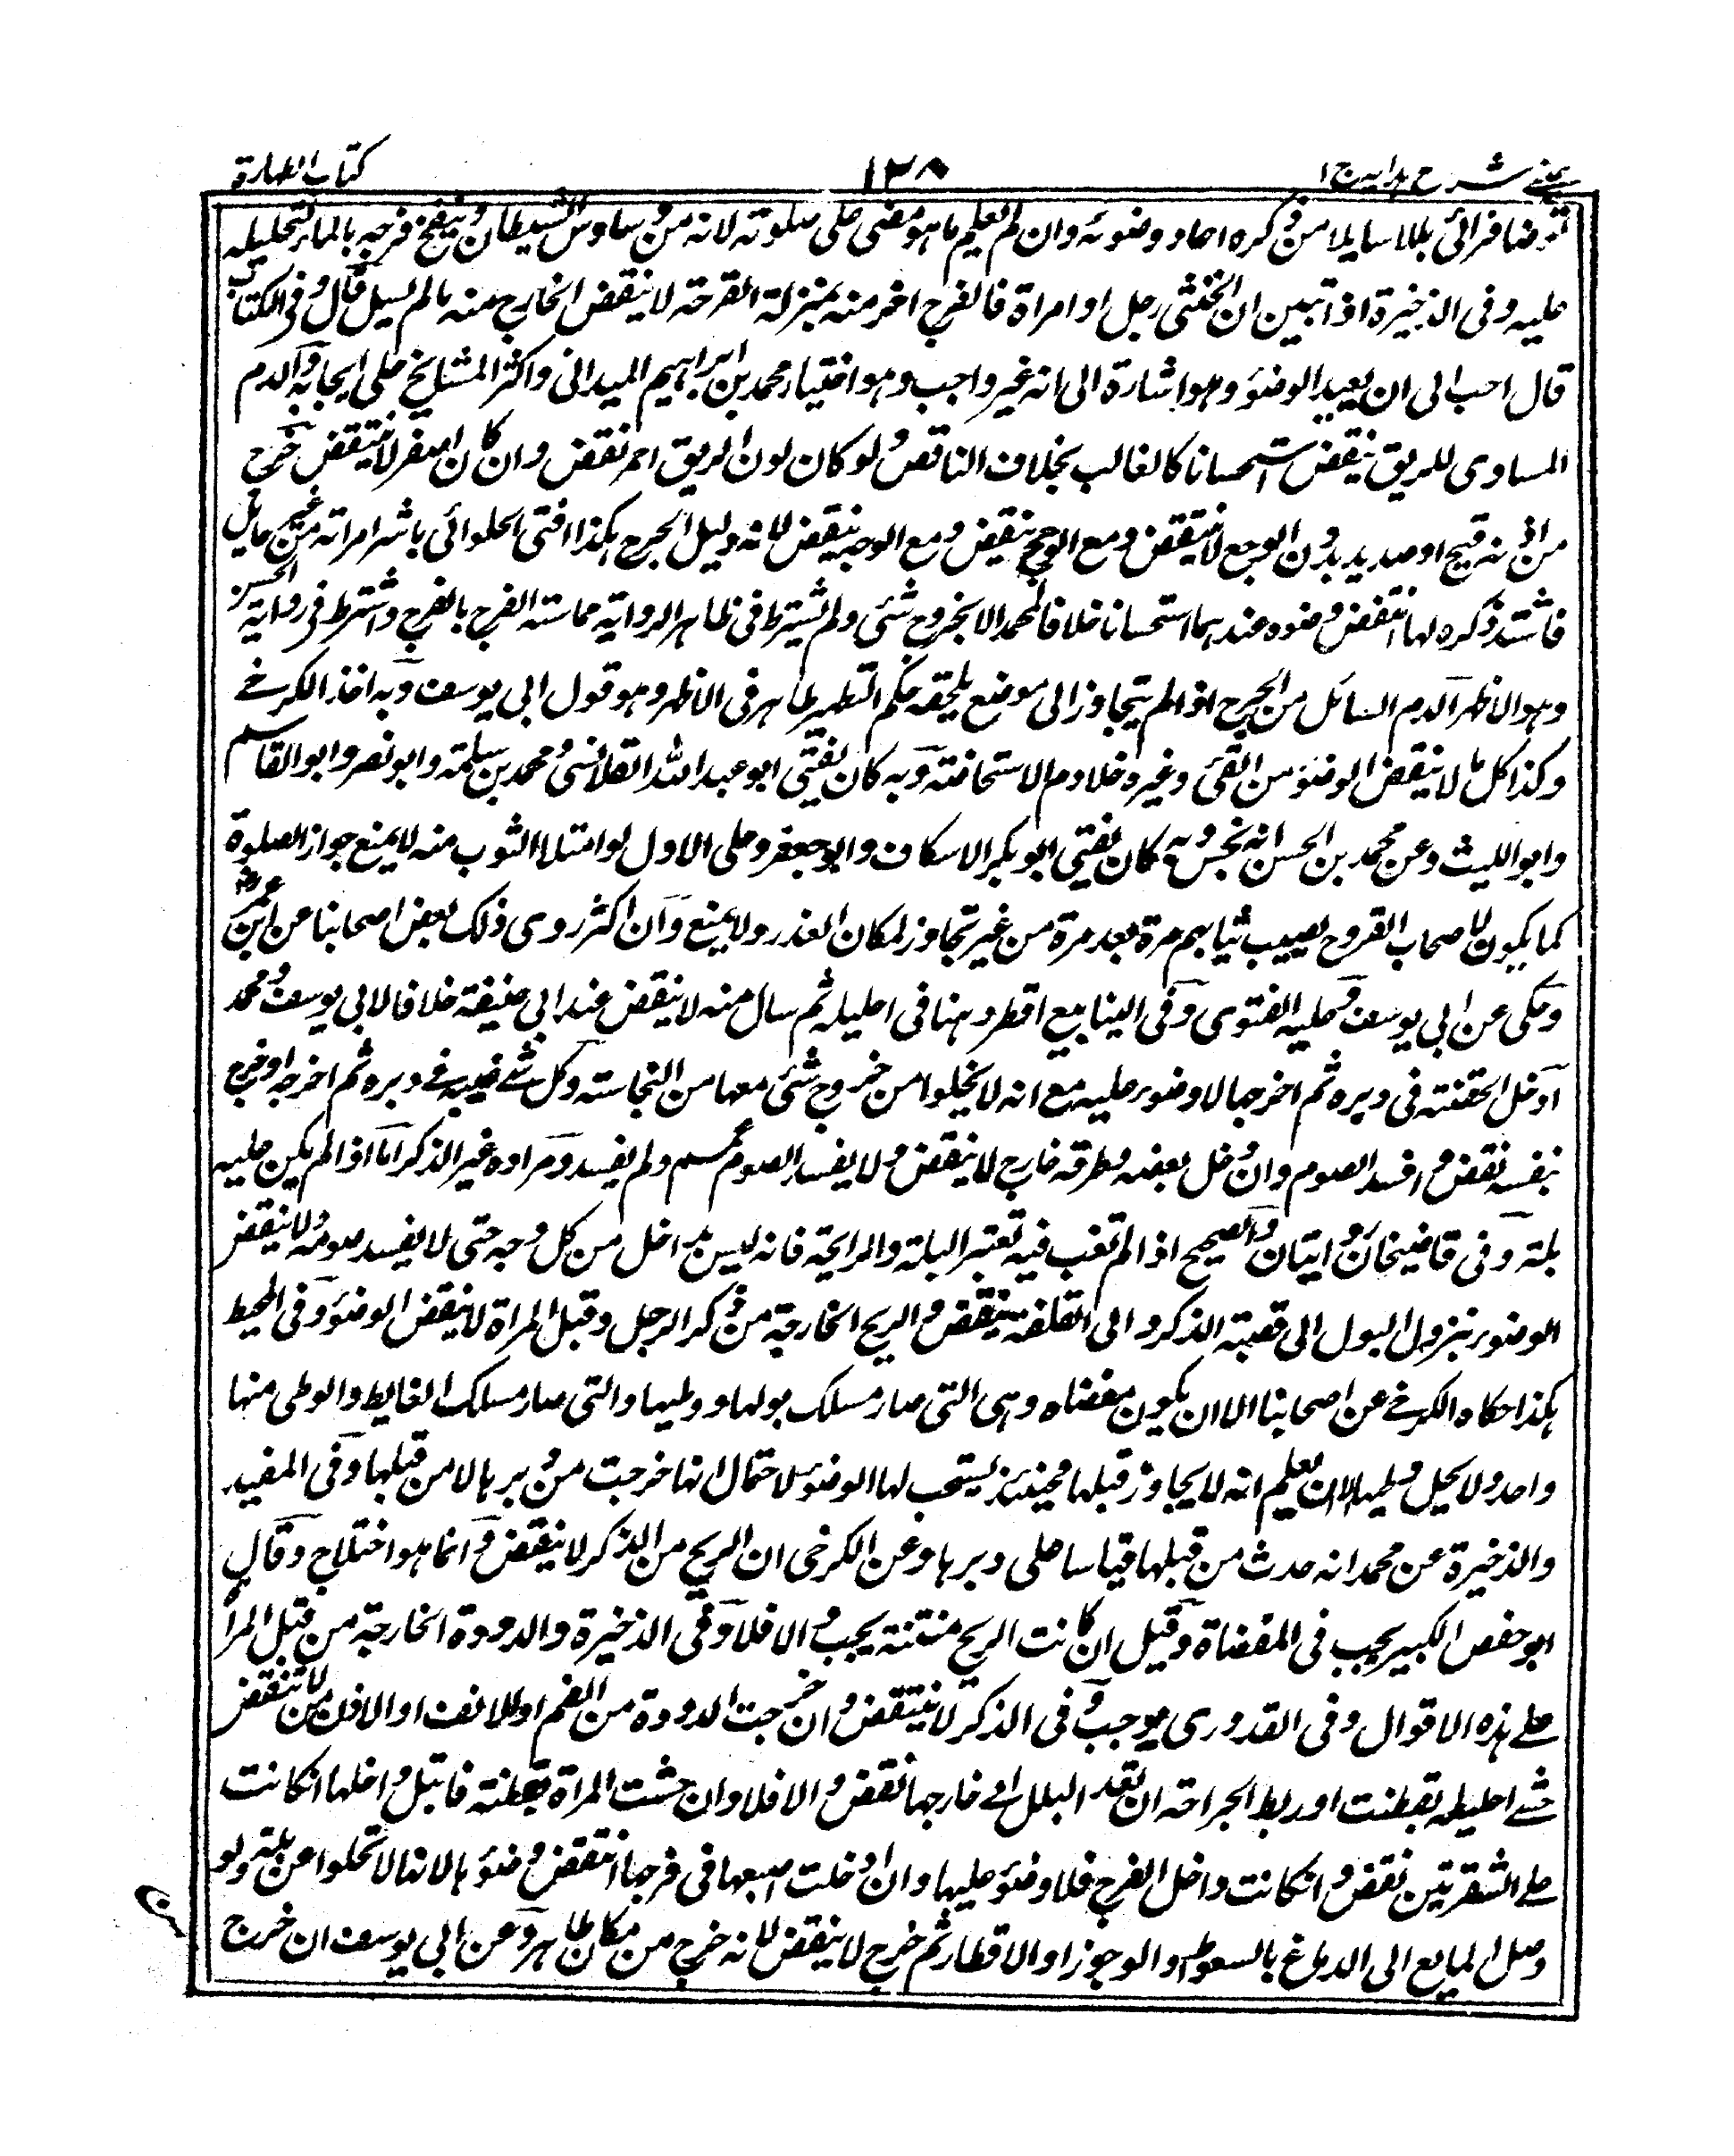 عینی شرح ہدایہ ج ۱
۱۳۸
کتاب الطہارۃ
توضأ فرائی بللا سایلا من ذکرہ اعاد وضوئہ وان لم یعلم ما ہو مضی علی صلوتہ لانہ من وساوس الشیطان وینضح فرجہ بالماء لتحلیلہ
علیہ وفی الذخیرۃ اذا تبین ان الخنثی رجل او امراۃ فالفرج اخر منہ بمنزلۃ القرحۃ لا ینقض الخارج منہ مالم یسیل قال وفی الکتاب
قال احب الی ان یعید الوضوٴ وہو اشارۃ الی انہ غیر واجب وہو اختیار محمد بن ابراہیم المیدانی واکثر المشایخ علی ایجابہ والدم
المساوی للریق ینقض استحسانا کالغالب بخلاف الناقص ولو کان لون الریق احمر نقض وان کان اصفر لا ینتقض خرج
من اذنہ قیح او صدید بدون الوجع لا ینتقض ومع الوجع ینقض ومع الوجہ ینقض لانہ دلیل الجرح ہکذا افتی الحلوائی باشر امراتہ من غیر حایل
فاشتد ذکرہ لہا انتقض وضوہ عندہما استحسانا خلافا لمحمد الا بخروج شئی ولم یشترط فی ظاہر الروایۃ مماستہ الفرج بالفرج واشترط فی روایۃ الحسن
وہو الاظہر الدم السائل من الجرح اذا لم یتجاوز الی موضع یلحقہ حکم التطہیر طاہر فی الاظہر وہو قول ابی یوسف وبہ اخذ الکرخے
وکذا کل ما لا ینقض الوضوٴ من القئ وغیرہ خلا دم الاستحاضتہ وبہ کان یفتی ابو عبد اللہ القلانسی ومحمد بن سلمتہ وابو نصر وابو القاسم
وابو اللیث وعن محمد بن الحسن انہ نجس وبہ کان یفتی ابو بکر الاسکاف وابو جعفر وعلی الاول لو امتلا الثوب منہ لا یمنع جواز الصلوۃ
کما یکون لاصحاب القروح یصیب ثیابہم مرۃ بعد مرۃ من غیر تجاوز لمکان العذر ولا یمنع وان اکثر روی ذلک بعض اصحابنا عن ابن عمر رض
وحکی عن ابی یوسف وعلیہ الفتوی وفی الینابیع اقطر دہنا فی احلیلہ ثم سال منہ لا ینقض عند ابی حنیفۃ خلافا لابی یوسف ومحمد
ادخل الحقنتہ فی دبرہ ثم اخرجہا لا وضوء علیہ مع انہ لا یخلوا من خروج شئی معہا من النجاستہ وکل شے غیبہ فے دبرہ ثم اخرجہ او خرج
بنفسہ نقض وافسد الصوم وان دخل بعضہ وطرفہ خارج لا ینقض ولا یفسد الصوم ولم یفسد ومرادہ غیر الذکر اما اذا لم یکن علیہ
بلۃ وفی قاضیخان روایتان والصحیح اذا لم تغب فیہ تعتبر البلۃ والرایحۃ فانہ لیس بداخل من کل وجہ حتی لا یفسد صومہ ولا ینقض
الوضوء بنزول البول الی قصبتہ الذکر والی القلفتہ ینقض والریح الخارجۃ من ذکر الرجل وقبل المراۃ لا ینقض الوضوٴ وفی المحیط
ہکذا حکاہ الکرخے عن اصحابنا الا ان یکون مفضاہ وہی التی صار مسلک بولہا ووطیہا والتی صار مسلک الغایط والوطی منہا
واحد ولا یحل وطیہا الا ان یعلم انہ لا یجاوز قبلہا فحینئذ یستحب لہا الوضوٴ لاحتمال انہا خرجت من دبرہا لا من قبلہا وفی المفید
والذخیرۃ عن محمد انہ حدث من قبلہا قیاسا علی دبرہا وعن الکرخی ان الریح من الذکر لا ینقض وانما ہو اختلاج وقال
ابو حفص الکبیر یجب فی المفضاۃ وقیل ان کانت الریح منتنۃ یجب والا فلا وفی الذخیرۃ والدودۃ الخارجۃ من قبل المرأ
علے ہذہ الاقوال وفی القدوری یوجب وفی الذکر لا ینتقض وان خرجت الدودۃ من الفم او الانف او الاذن لا ینتقض
حشے احلیلہ بقطنت او ربط الجراحۃ ان نفد البلل الے خارجہا نقض والا فلا وان حشت المراۃ بقطنتہ فابتل داخلہا انکانت
علے الشفرتین نقض وانکانت داخل الفرج فلا وضوٴ علیہا وان ادخلت اصبعہا فی فرجہا انتقض وضوٴہا لانہا لا تخلوا عن بلۃ ولو
وصل المایع الی الدماغ بالسعوط والوجور او الاقطار ثم خرج لا ینقض لانہ خرج من مکان طاہر وعن ابی یوسف ان خرج